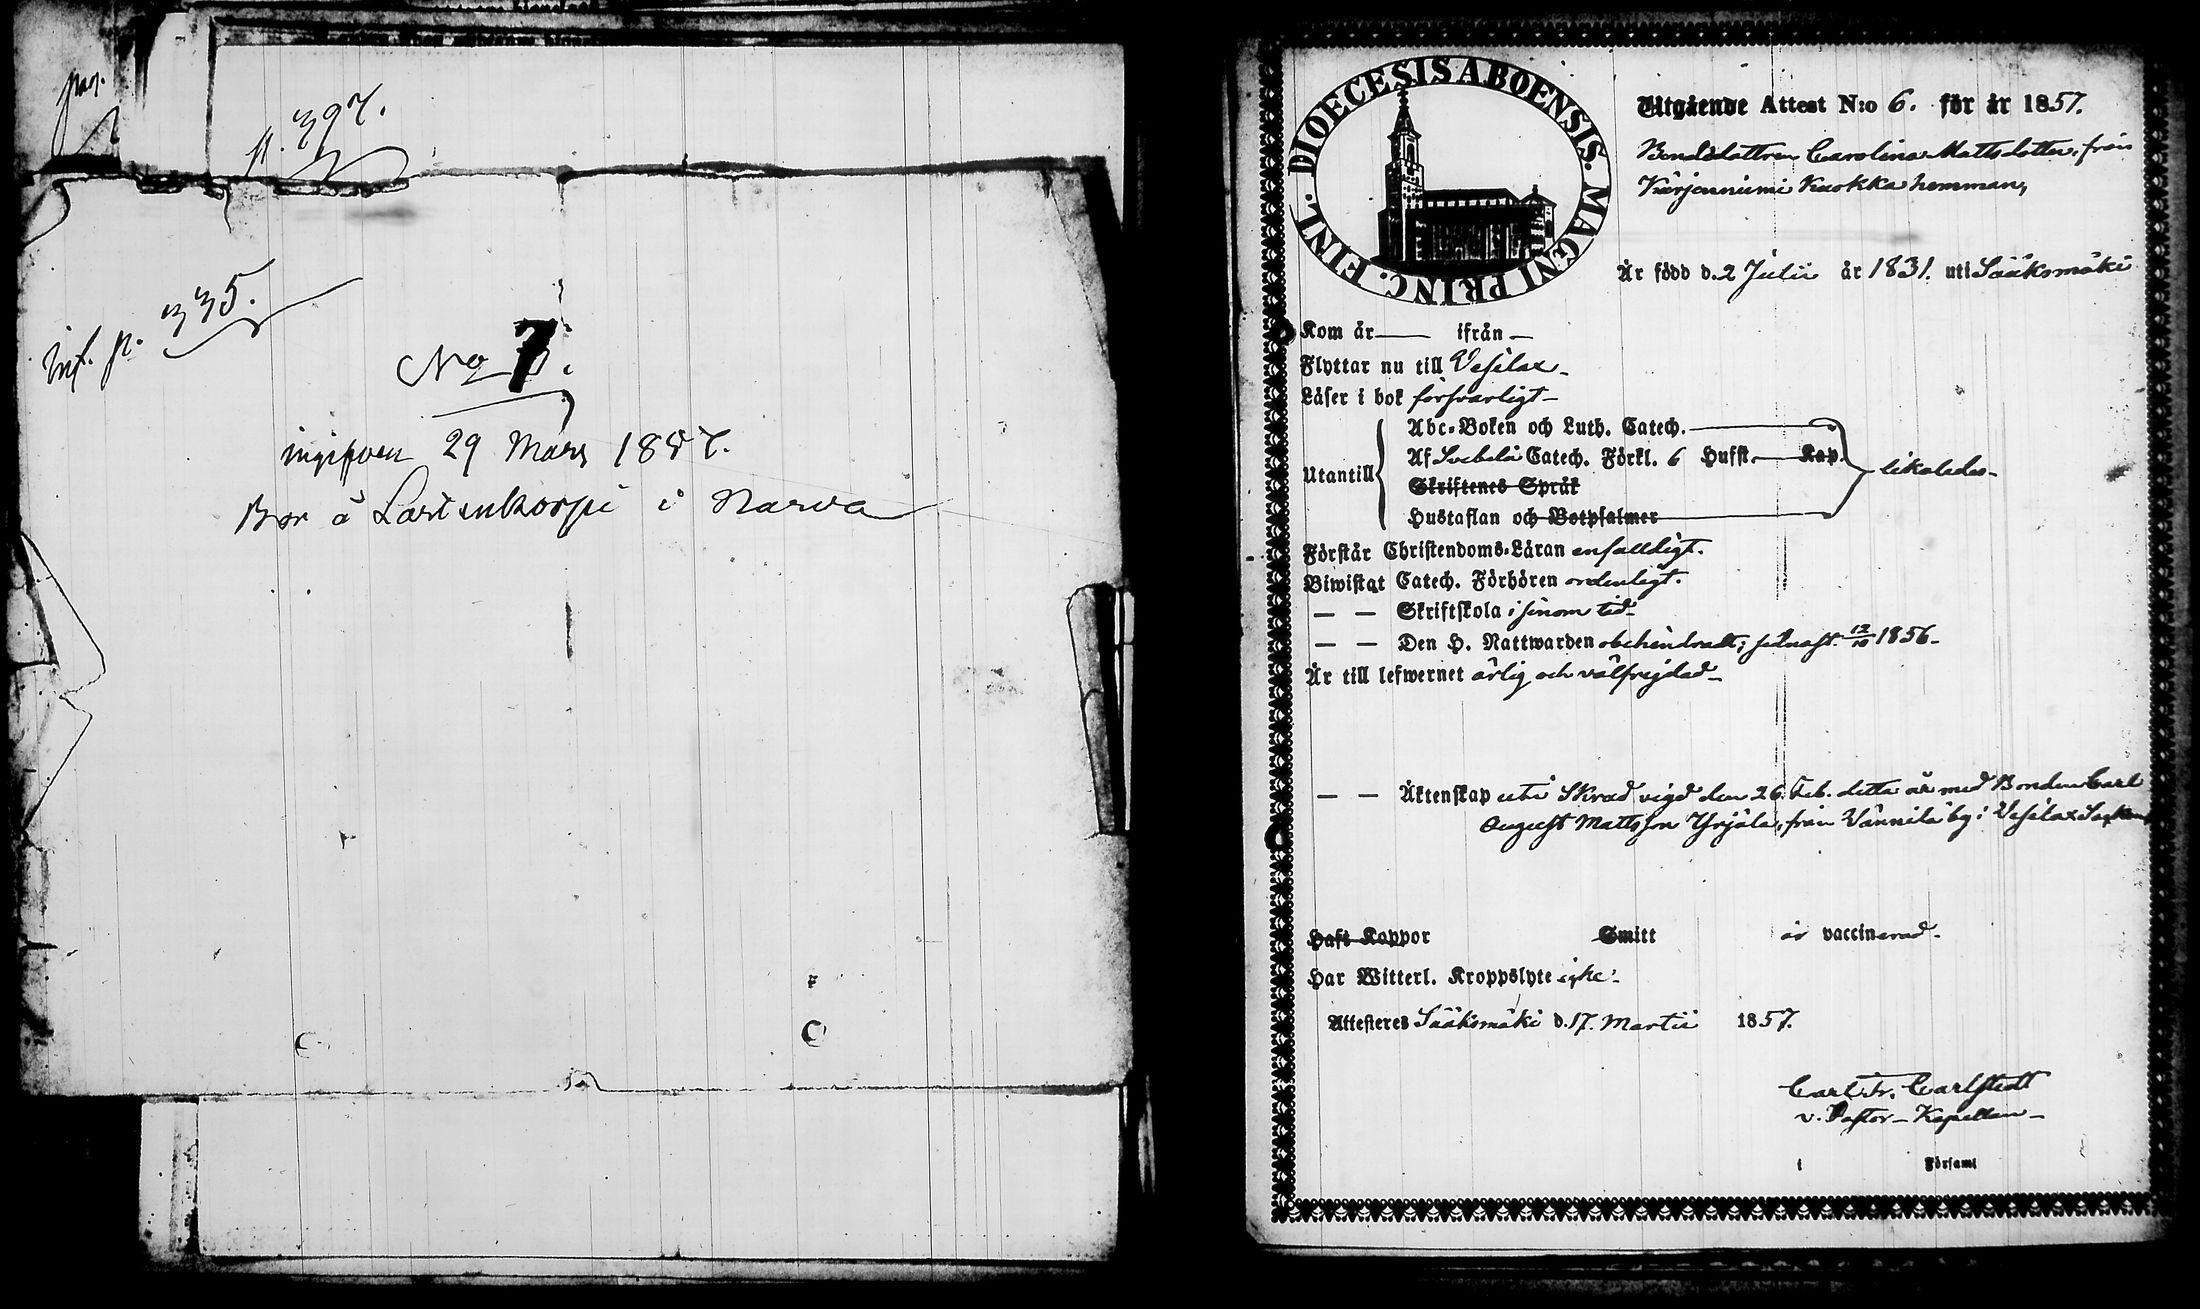 p. 397.
inf. p. 335.
No 7.
ingifven 29 Mars 1857.
Bor å Lastenkorpi i Narva
DIOECESIS ABOENSIS. MAGNI PRINC. FINL.
Utgående Attest N:o 6. för år 1857.
Bondedottren Carolina Mattsdotter, från
Kärjenniemi Kuokka hemman,
Är född d. 2 Julii år 1831. uti Sääksmäki
Kom år — ifrån —
Flyttar nu till Vesilax —
Läser i bok försvarligt —
Abc-Boken och Luth. Catech.
Utantill Af Svebelii Catech. Förkl. 6 Hufst. — Kap. likaledes —
Skriftenes Språk
Hustaflan och Botpsalmer
Förstår Christendoms-Läran enfaldigt.
Biwistat Catech. Förhören ordenligt.
— — Skriftskola i sinom tid —
— — Den H. Nattwarden obehindradt; sednast 12/10 1856 —
Är till lefwernet ärlig och välfrejdad —
— — Äktenskap uti Skrud vigd den 26. Feb. detta år med Bonden Carl
August Mattsson Yrjälä, från Vännilä by i Vesilax Socken
Haft Koppor Smitt är vaccinerad.
Har Witterl. Kroppslyte icke.
Attesteres Sääksmäki d. 17. Martii 1857.
Carl Fr. Carlstedt
v. Pastor — Kapellan —
i Församl